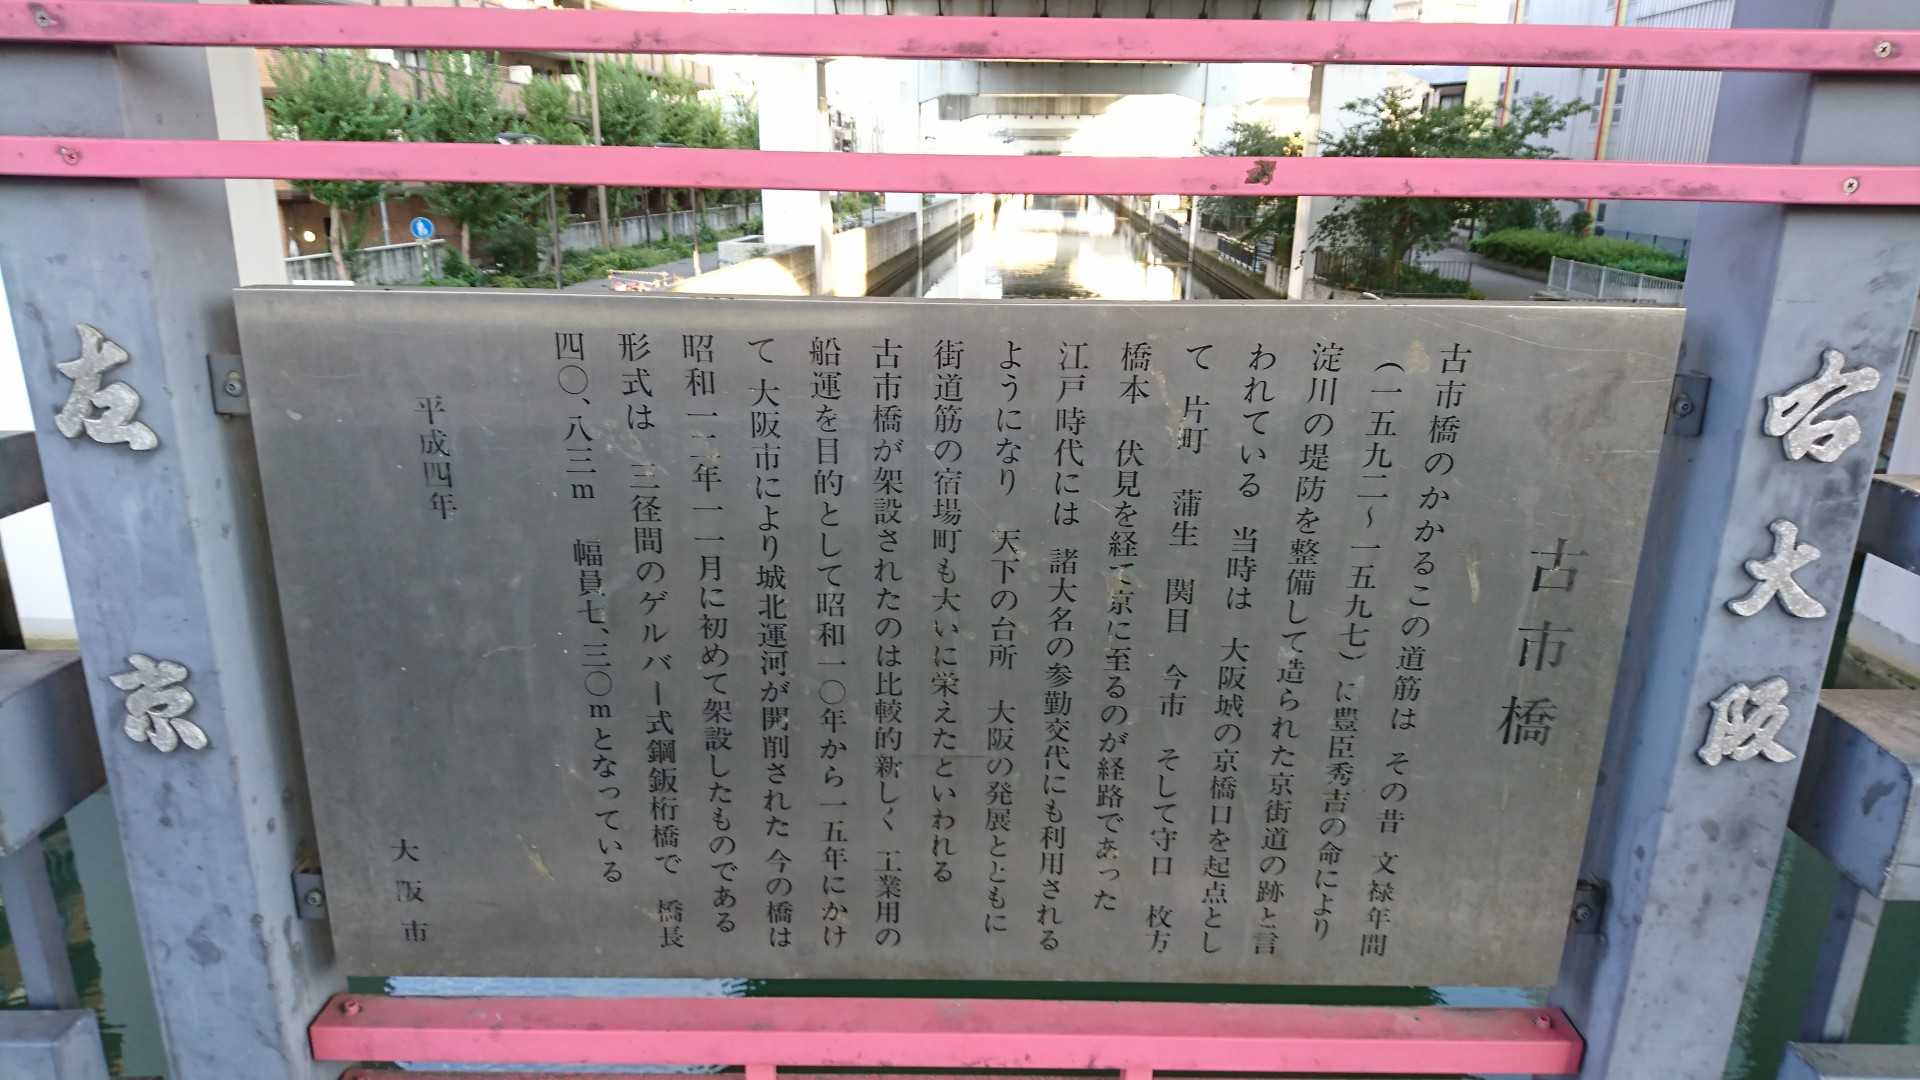 右大阪
古市橋
古市橋のかかるこの道筋は その昔 文禄年間
(一五九二～一五九七)に豊臣秀吉の命により
淀川の堤防を整備して造られた京街道の跡と言
われている 当時は 大阪城の京橋口を起点とし
て 片町 蒲生 関目 今市 そして守口 枚方
橋本 伏見を経て京に至るのが経路であった
江戸時代には 諸大名の参勤交代にも利用される
ようになり 天下の台所 大阪の発展とともに
街道筋の宿場町も大いに栄えたといわれる
古市橋が架設されたのは比較的新しく 工業用の
船運を目的として昭和一〇年から一五年にかけ
て 大阪市により城北運河が開削された 今の橋は
昭和一二年一一月に初めて架設したものである
形式は 三径間のゲルバー式鋼鈑桁橋で 橋長
四〇、八三m 幅員七、三〇mとなっている
平成四年
大阪市
左京